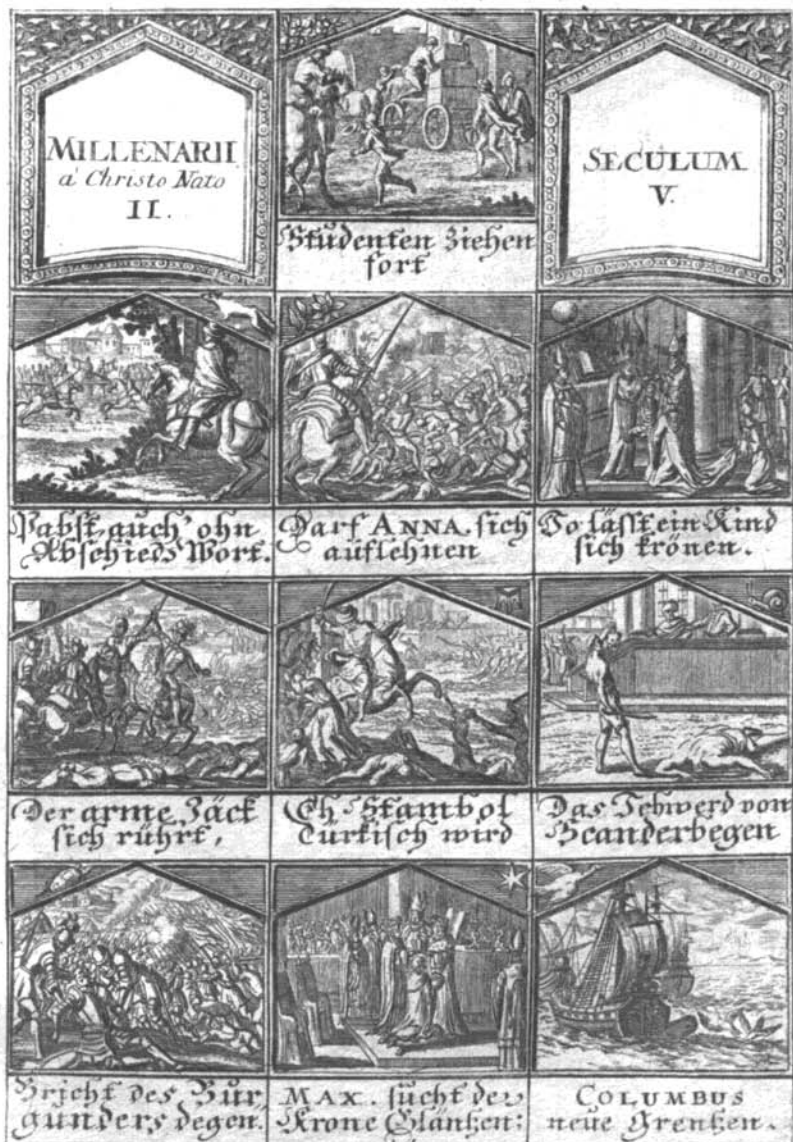 MILLENARII
á Christo Nato
II.
Studenten ziehen
fort
SECULUM
V.
Pabst, auch ohn
Abschieds Wort.
Darf ANNA sich
auflehnen
So lässt ein Kind
sich krönen.
Der arme Jäck
sich rührt,
Eh Stambol
Turkisch wird
Das Schwerd von
Scanderbegen
Bricht des Bur
gunders degen.
MAX. sucht der
Krone Gläntzen:
COLUMBUS
neue Grentzen.